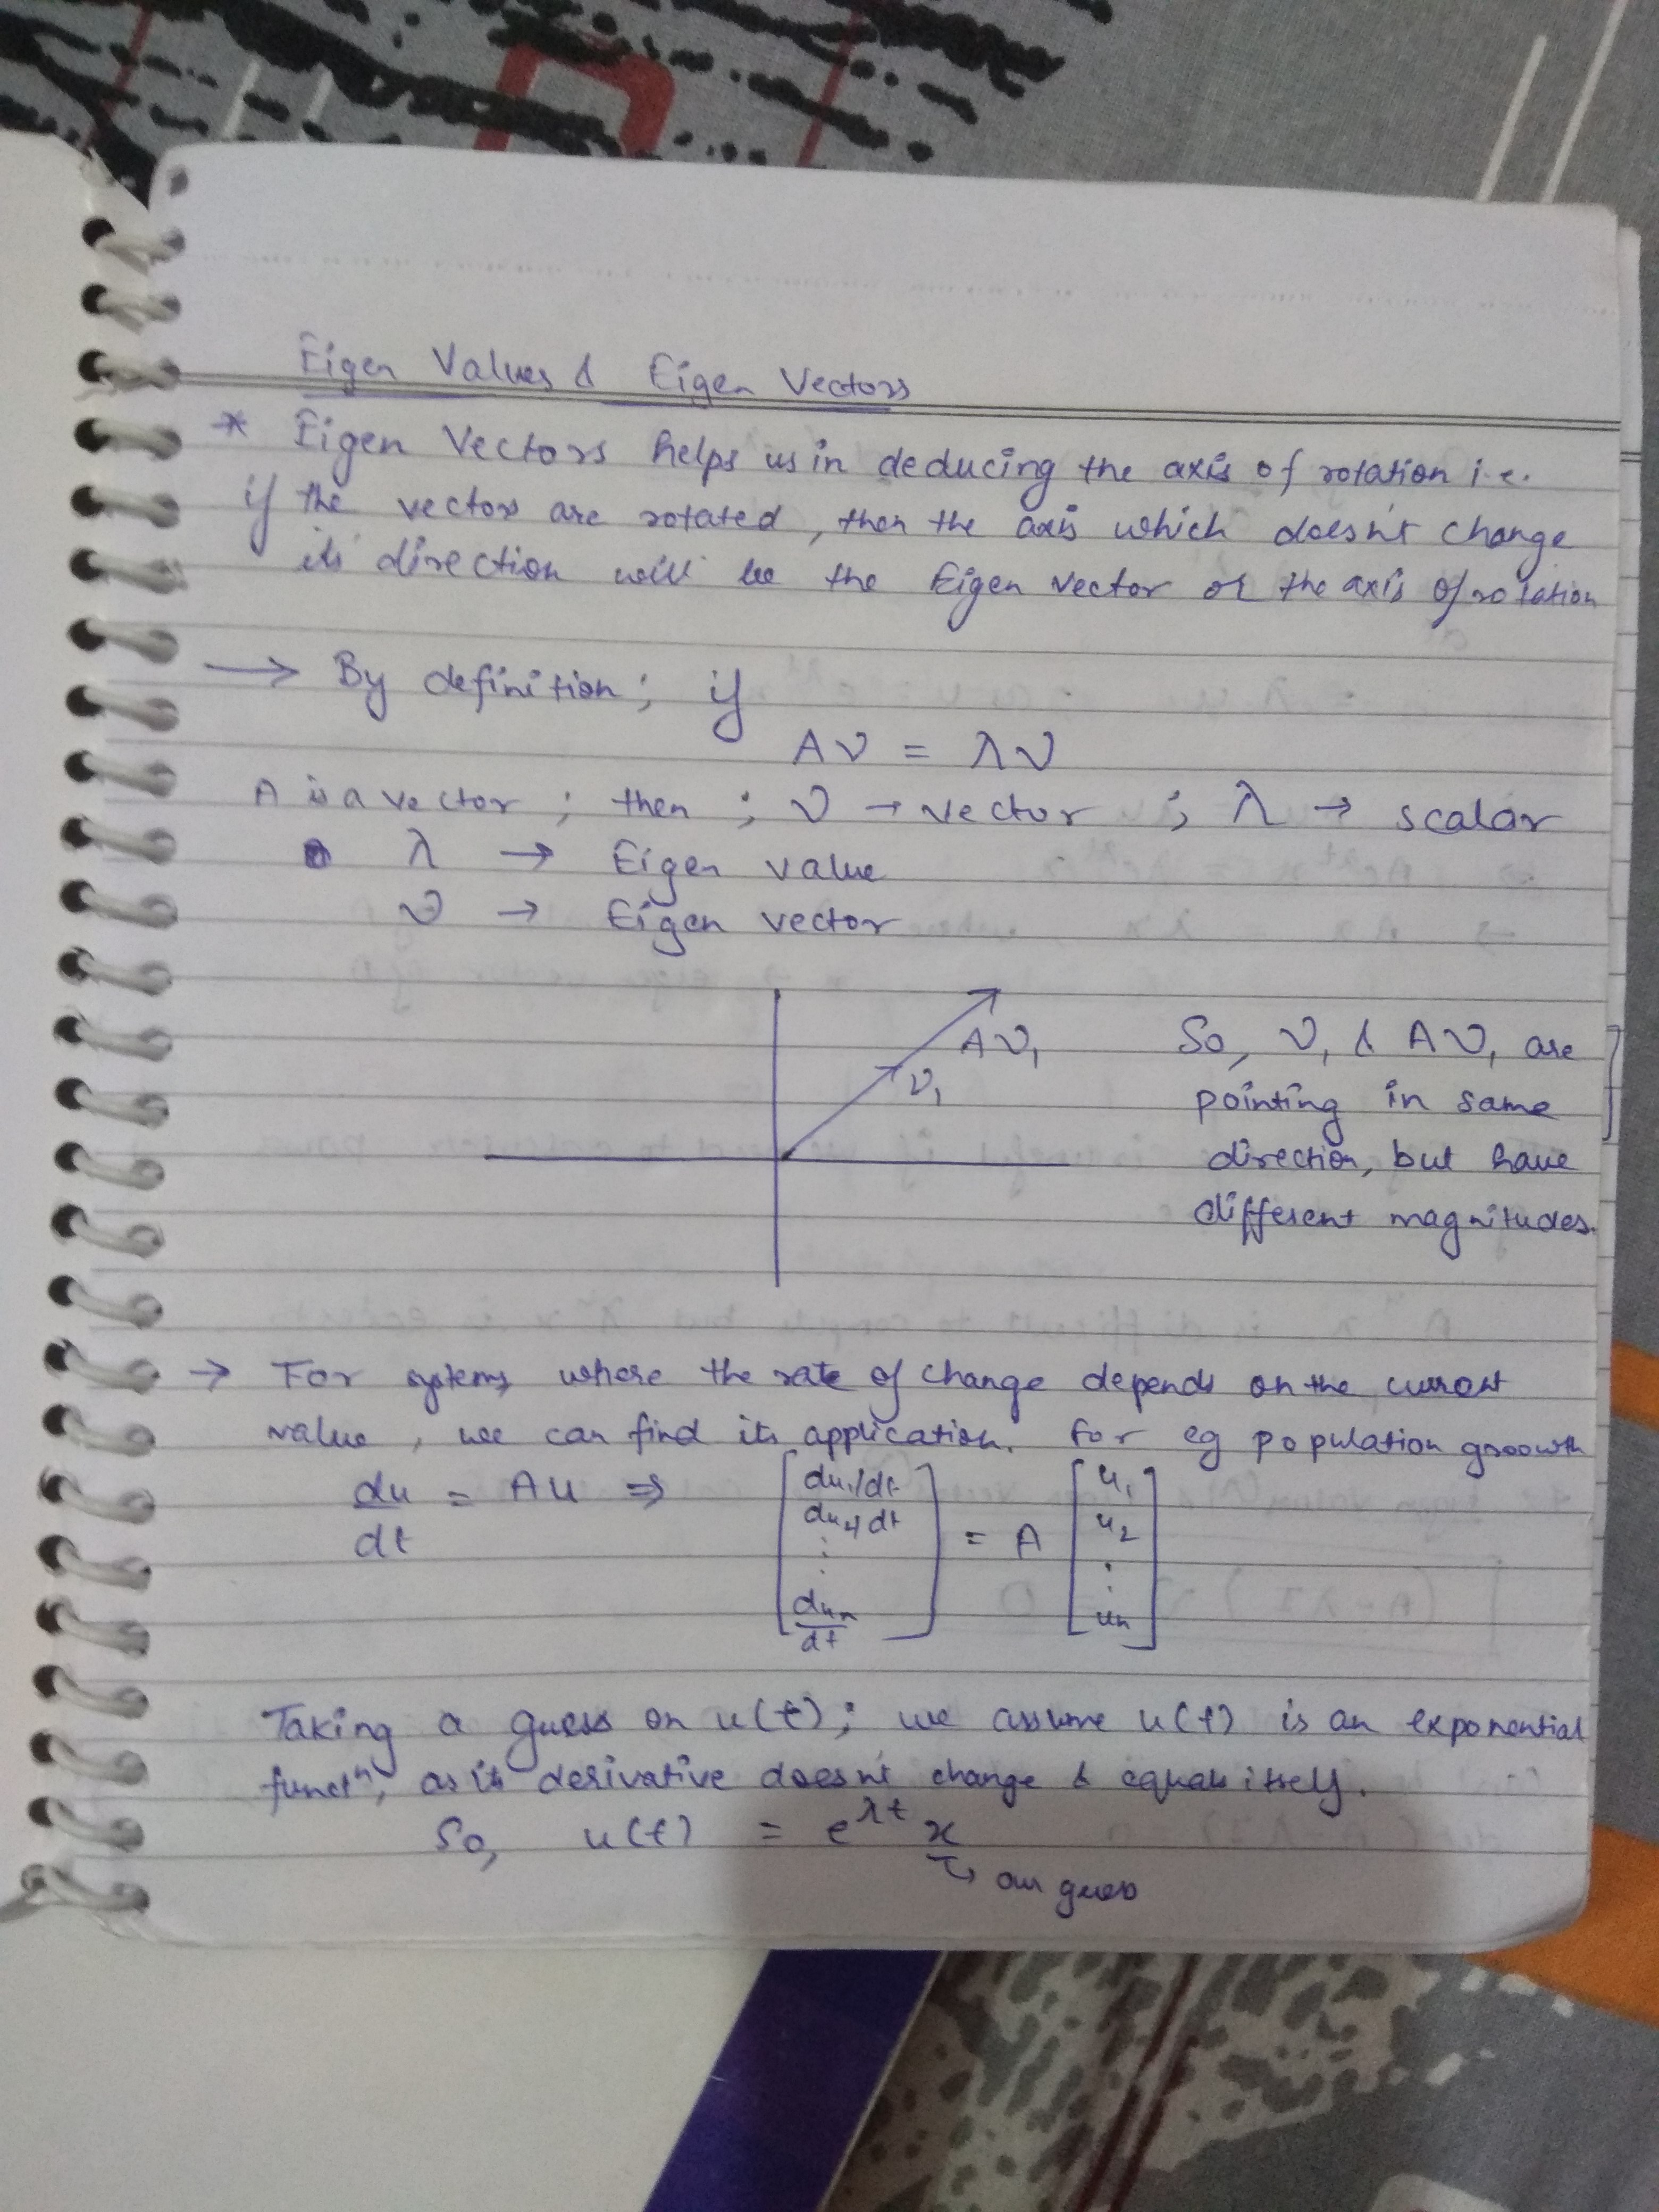 Eigen Values & Eigen Vectors
* Eigen Vectors helps us in deducing the axis of rotation i.e.
if the vectors are rotated, then the axis which doesn't change
its direction will be the Eigen Vector or the axis of rotation
→ By definition; if
Aν = λν
A is a vector; then; ν → vector; λ → scalar
λ → Eigen value
ν → Eigen vector
Aν₁
ν₁
So, ν₁ & Aν₁ are
pointing in same
direction, but have
different magnitudes.
→ For systems where the rate of change depends on the current
value, we can find its application. For eg population growth
du/dt = Au ⇒ [du₁/dt du₂/dt ⋮ duₙ/dt] = A [u₁ u₂ ⋮ uₙ]
Taking a guess on u(t); we assume u(t) is an exponential
functⁿ, as its derivative doesn't change & equals itself.
So, u(t) = e^λt x
↳ our guess